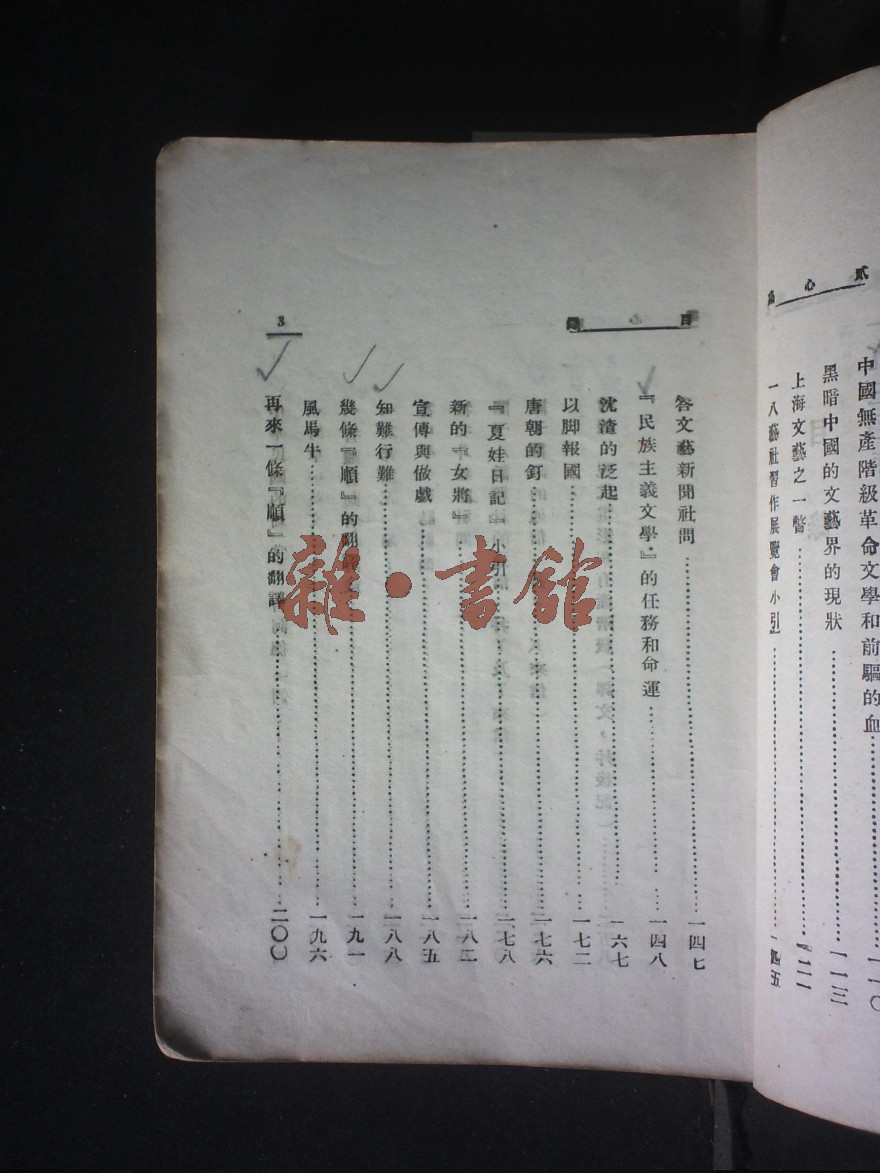 貳心
中國無產階級革命文學和前驅的血……一一〇
黑暗中國的文藝界的現狀……一一三
上海文藝之一瞥……一二一
一八藝社習作展覽會小引……一四五
目
答文藝新聞社問……一四七
『民族主義文學』的任務和命運……一四八
沈渣的泛起……一六七
以脚報國……一七二
唐朝的釘……一七六
『夏娃日記』小引……一七八
新的『女將』……一八二
宣傳與做戲……一八五
知難行難……一八八
幾條『順』的翻譯……一九一
風馬牛……一九六
再來一條『順』的翻譯……二〇〇
3
雜·書館